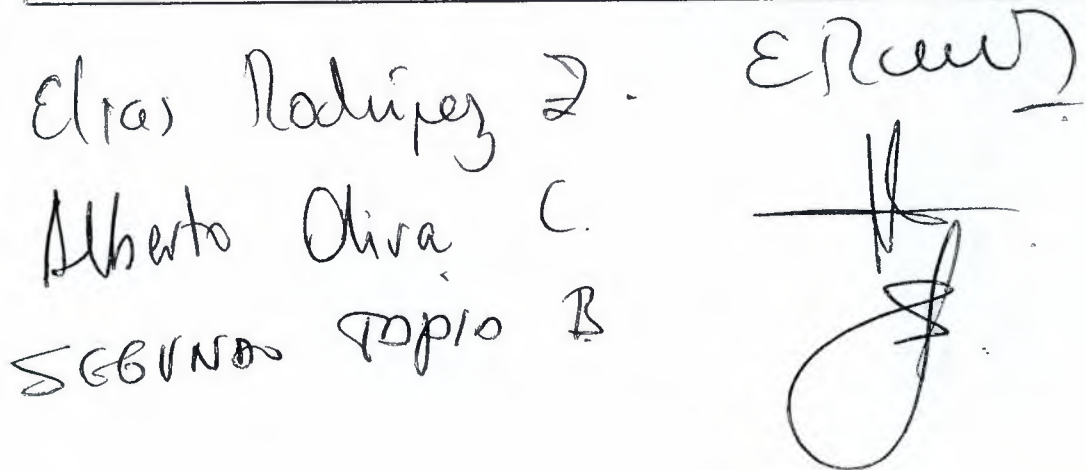 Elias Rodríguez Z.
Alberto Oliva C.
SEGUNDO TAPIA B